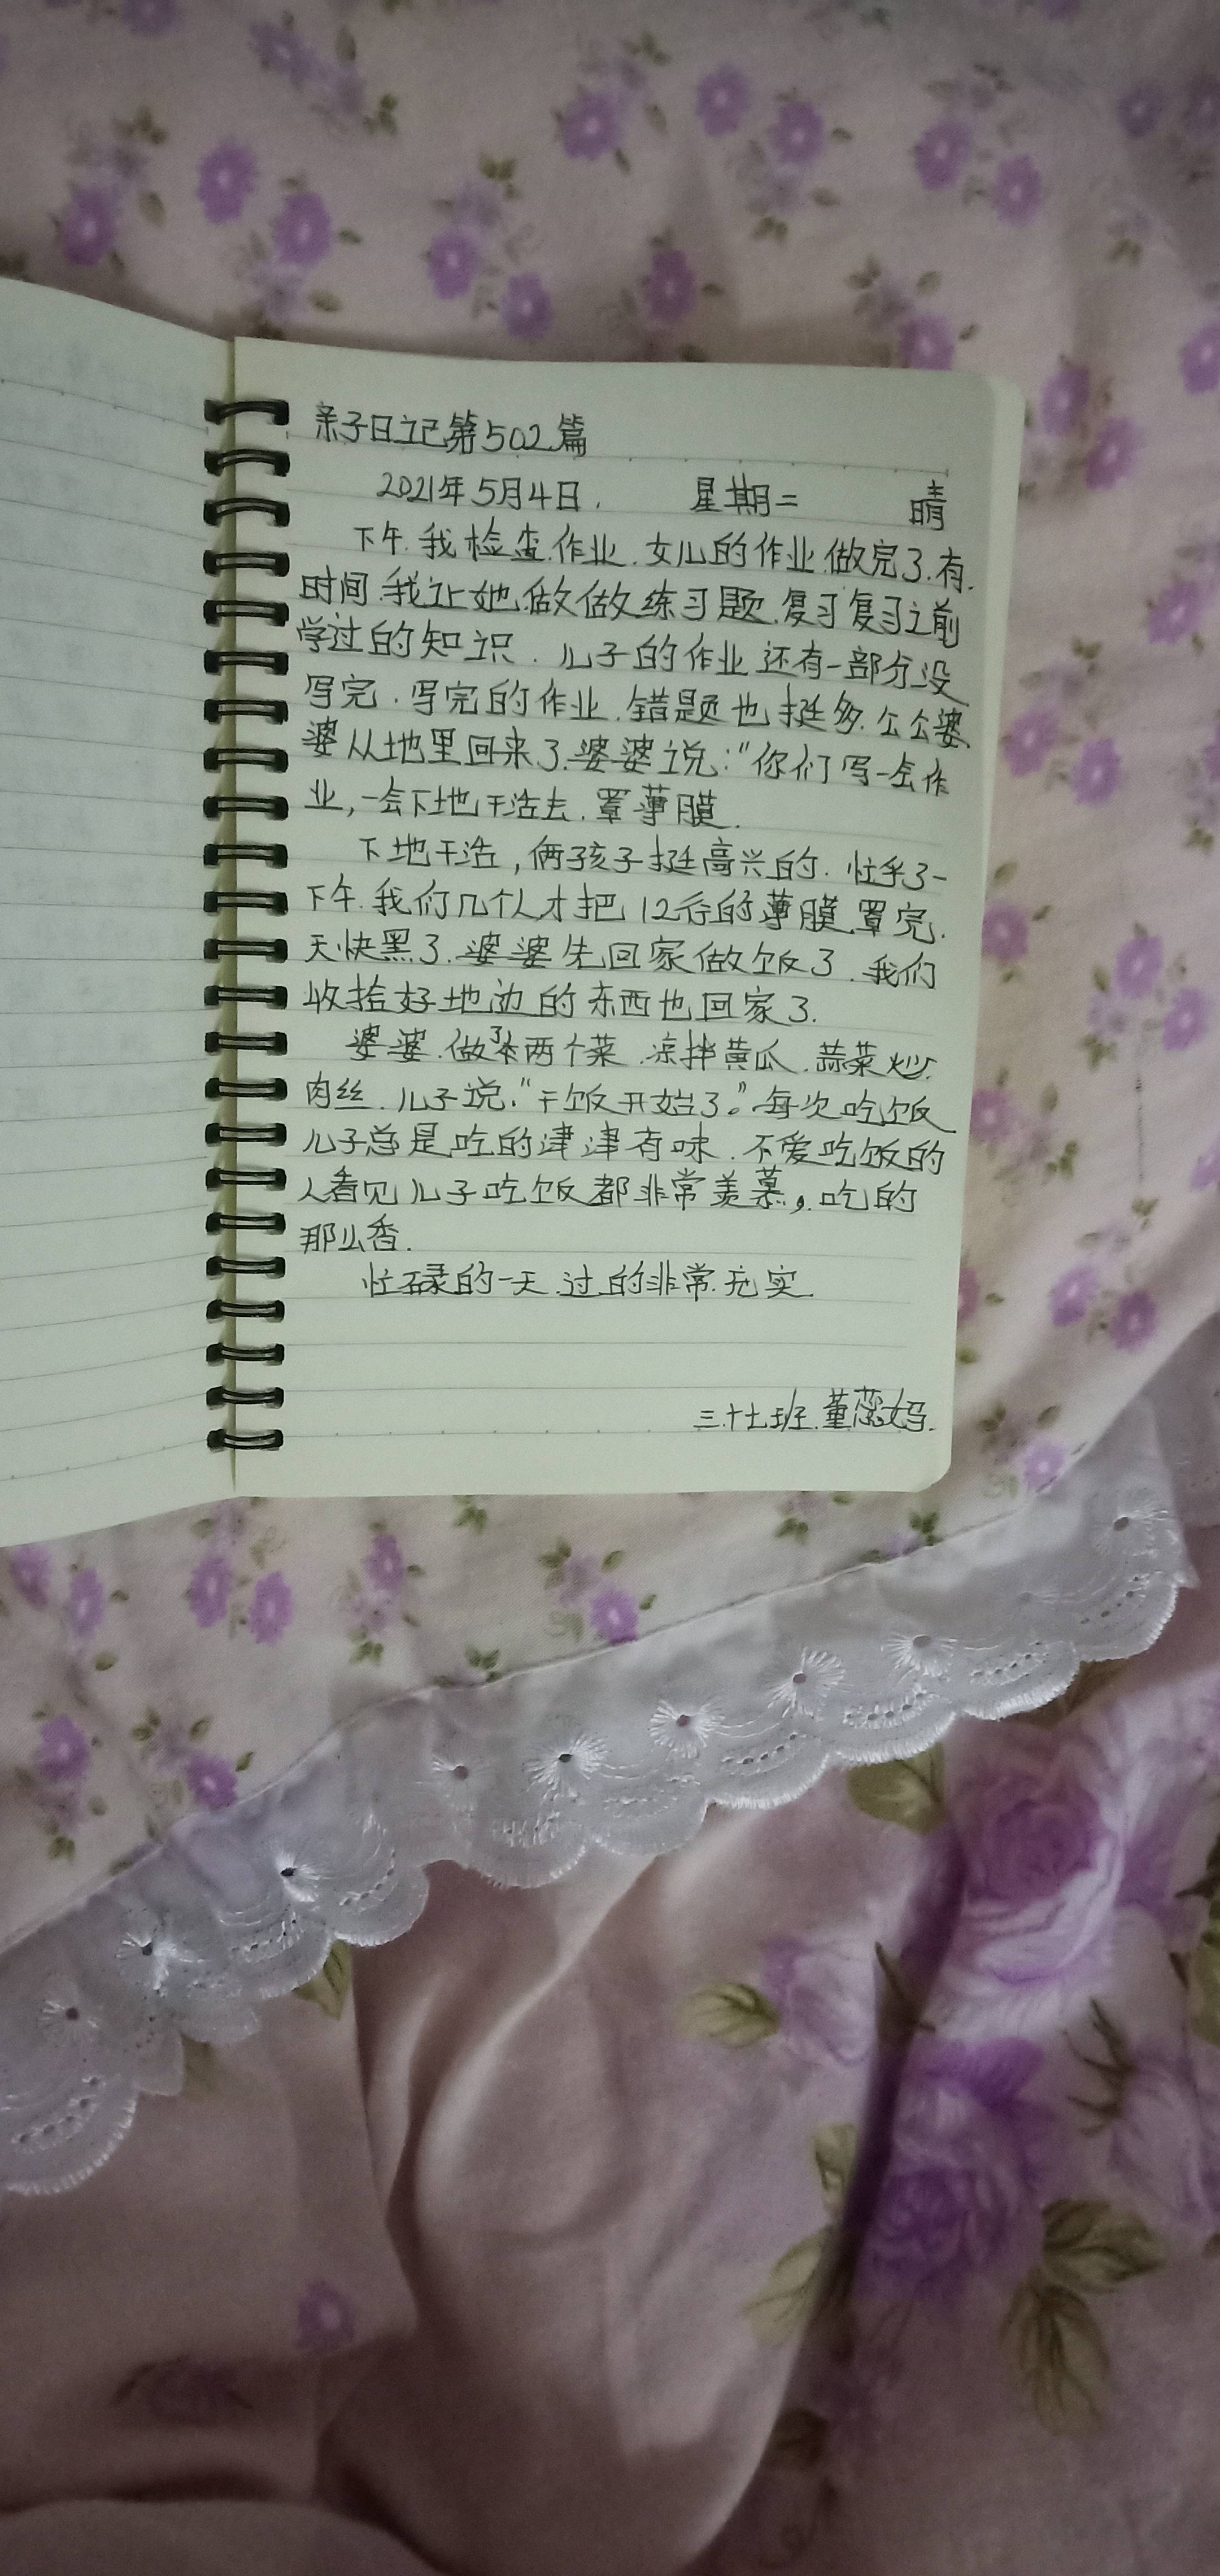 亲子日记第502篇
2021年5月4日. 星期二 晴
下午.我检查.作业.女儿的作业.做完了.有.
时间.我让她.做做练习题.复习复习之前
学过的知识.儿子的作业还有一部分没
写完.写完的作业.错题也挺多.公公婆
婆从地里回来了.婆婆说:“你们写一会作
业,一会下地干活去.罩薄膜.
下地干活,俩孩子挺高兴的.忙乎了一
下午.我们几个人才把12行的薄膜.罩完.
天快黑了.婆婆先回家做饭了.我们
收拾好地边的东西也回家了.
婆婆.做了两个菜.凉拌黄瓜.蒜菜炒.
肉丝.儿子说.“干饭开始了。”每次吃饭
儿子总是吃的津津有味.不爱吃饭的
人看见儿子吃饭都非常羡慕,.吃的
那么香.
忙碌的一天.过的非常.充实.
三.十七班.董蕊妈.